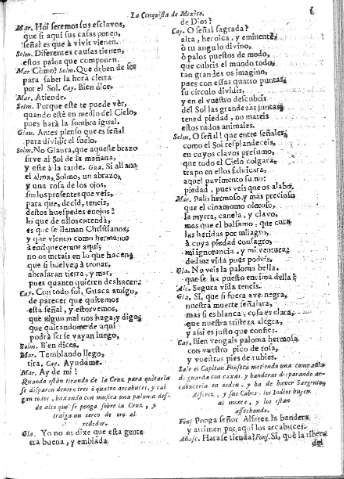 La Conquista de Mexico.
Mar. Hoi seremos sus esclavos,
que si aqui sus casas ponen,
señal es que à vivir vienen.
Solm. Diferentes causas tienen,
estos palos que componen.
Mar. Como? Solm. Que deben de ser
para saber la hora cierta
por el Sol. Cay. Bien dice.
Mar. Atiende.
Solm. Porque este te puede vèr,
quando estè en medio del Cielo,
pues harà la sombra igual.
Glau. Antes pienso que es señal
para dividir el suelo.
Solm. No Glauca, que aqueste brazo
sirve al Sol de la mañana,
y este à la tarde.
el Alma, Solmo, un abrazo,
y una rosa de los ojos,
para que, decid, teneis,
destos huespedes enojos?
lo que de ellos
es que se llaman Christianos,
y que vienen como hermanos
à enriquecerme aqui;
no os metais en lo que hacen,
que si buelven à tronar,
abrasaràn tierra, y mar,
pues quanto quieren deshacen.
Cay. Con todo sol, Glauca amigo,
de parecer que quitemos
esta señal, y estorvemos,
que algun mal nos haga, y digo,
que quitandome de aqui
podrà ser se vayan luego,
Solm. Bien dices.
Mar. Temblando llego,
tira, Cay. Ayudame.
Mar. Ay de mi!
Quando estèn tirando de la Cruz para quitarla
se disparen dentro tres ò quatro arcabuces, y caigan
todos, baxando con musica una paloma desde
alto que se ponga sobre la Cruz, y
traiga un cerco de oro al
rededor.
Gla. Yo no os dixe que esta gente
era buena, y emblada
de Dios?
Cay. O señal sagrada?
alta, heroica, y eminente,
ò tu angulo divino,
ò palos puestos de modo,
que cubris el mundo todo,
tan grandes os imagino,
pues con essas quatro puntas
su circulo dividis,
y en el vuestro descubris
del Sol las grandezas juntas,
tened piedad, no mateis
estos rudos animales.
Solm. O señal! que entre señales
como el Sol resplandeceis,
en cuyos clavos presumo,
que todo el Cielo colgara,
piedad, pues veis que os alabo.
Mar. Palo hermoso, y mas precioso
que el cinamomo oloroso,
la myrra, canela, y clavo,
mas que el balsamo, que cura
las heridas por milagro,
à cuya piedad consagro,
mi ignorancia, y mi ventura;
dadme vida pues podeis.
Gla. No veis la paloma bella,
que se ha puesto encima della?
Alc. Segura vida teneis.
Gla. Si, que si fuera ave negra,
nuestra muerte señalara,
mas si es blanca, cosa es clara,
que nuestra tristeza alegra,
y assi es justo que confies.
Cay. Bien vengais paloma hermosa
con vuestro pico de rosa,
y vuestros pies de rubies.
Sale el Capitan Fonseca metiendo una compañia
de guarda con caxas, y banderas disparando arcabuceria
en orden, y ha de haver Sargento,
Alferez, y sus Cabos. los Indios huyen
al monte, y los estàn
assechando.
Fons. Ponga señor Alferez la bandera,
y arrimen por aqui los arcabuces.
Alfer. Harase tienda? Fons. Si, què la ribera
del